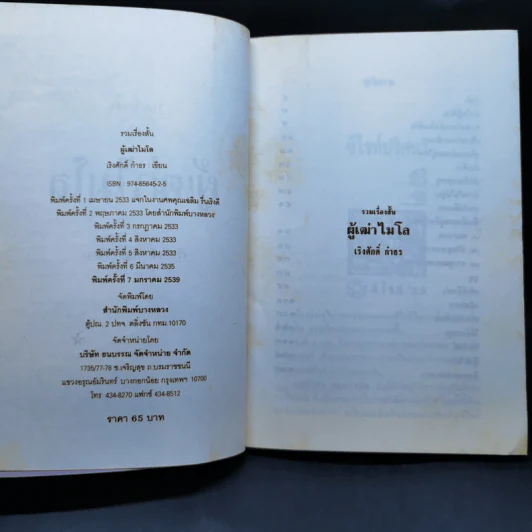 รวมเรื่องสั้น
ผู้เฒ่าไมโล
เริงศักดิ์ กำธร : เขียน
ISBN : 974-85645-2-5
พิมพ์ครั้งที่ 1 เมษายน 2533 แจกในงานศพคุณเฉลิม รื่นเริงดี
พิมพ์ครั้งที่ 2 พฤษภาคม 2533 โดยสำนักพิมพ์บางหลวง
พิมพ์ครั้งที่ 3 กรกฎาคม 2533
พิมพ์ครั้งที่ 4 สิงหาคม 2533
พิมพ์ครั้งที่ 5 สิงหาคม 2533
พิมพ์ครั้งที่ 6 มีนาคม 2535
พิมพ์ครั้งที่ 7 มกราคม 2539
จัดพิมพ์โดย
สำนักพิมพ์บางหลวง
ตู้ปณ. 2 ปทจ. ตลิ่งชัน กทม.10170
จัดจำหน่ายโดย
บริษัท ธนบรรณ จัดจำหน่าย จำกัด
1735/77-78 ซ.เจริญสุข ถ.บรมราชชนนี
แขวงอรุณอัมรินทร์ บางกอกน้อย กรุงเทพฯ 10700
โทร 434-8270 แฟกซ์ 434-8512
ราคา 65 บาท
รวมเรื่องสั้น
ผู้เฒ่าไมโล
เริงศักดิ์ กำธร